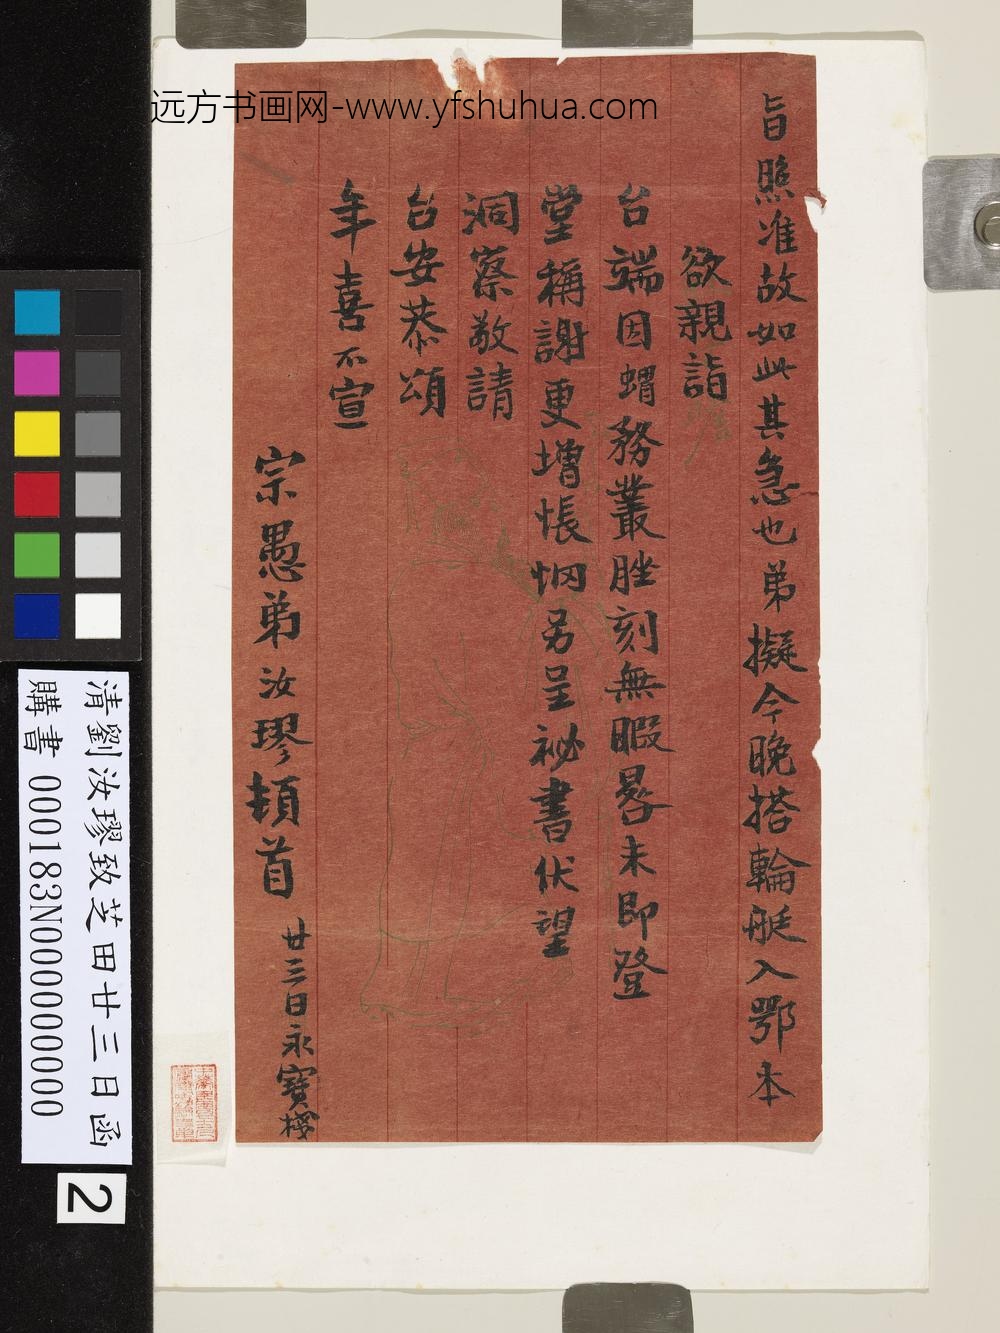 远方书画网-www.yfshuhua.com
旨照准故如此其急也弟擬今晚搭輪艇入鄂本
欲親詣
台端因蝟務叢脞刻無暇晷未即登
堂稱謝更增悵惘另呈祕書伏望
洞察敬請
台安恭頌
年喜不宣
宗愚弟汝璆頓首
廿三日永寶棧
清劉汝璆致芝田廿三日函
購書 000183N000000000
2